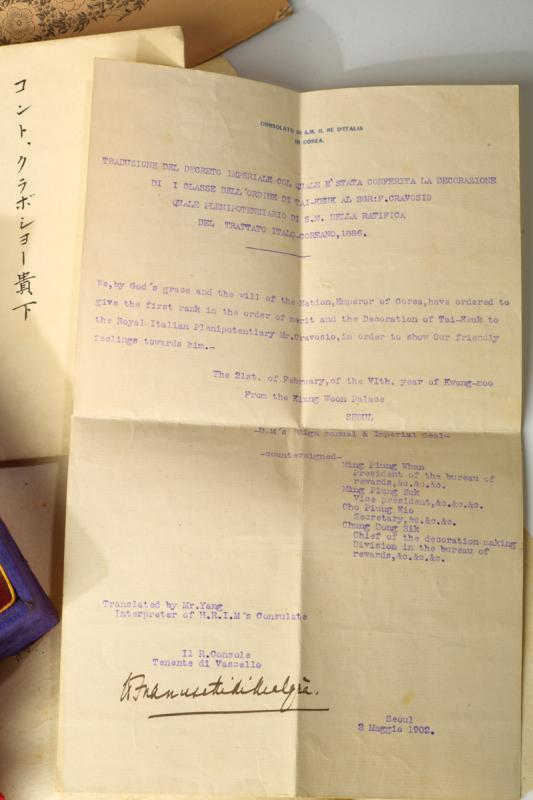 コント、クラボショー貴下
CONSOLATO DI S.M. IL RE D'ITALIA
IN COREA.
TRADUZIONE DEL DECRETO IMPERIALE COL QUALE E'STATA CONFERITA LA DECORAZIONE
DI I CLASSE DELL'ORDINE DI TAI-KEUK AL SGR:F.CRAVOSIO
QUALE PLENIPOTENZIARIO DI S.M. NELLA RATIFICA
DEL TRATTATO ITALO-COREANO,1886.
We,by God's grace and the will of the Nation,Emperor of Corea,have ordered to
give the first rank in the order of merit and the Decoration of Tai-Keuk to
the Royal Italian Plenipotentiary Mr.Cravosio,in order to show Our friendly
feelings towards him.-
The 21st. of February,of the VIth. year of Kwang-moo
From the Kiung Woon Palace
SEOUL
-H.M's Sign manual & Imperial Seal-
-countersigned-
Ming Piung Whan
President of the bureau of
rewards,&c.&c.&c.
Ming Piung Suk
Vice president,&c.&c.&c.
Cho Piung Kio
Secretary,&c.&c.&c.
Chung Dong Sik
Chief of the decoration making
Division in the bureau of
rewards,&c.&c.&c.
Translated by Mr.Yang
Interpreter of H.R.I.M's Consulate
Il R.Console
Tenente di Vascello
Seoul
2 Maggio 1902.